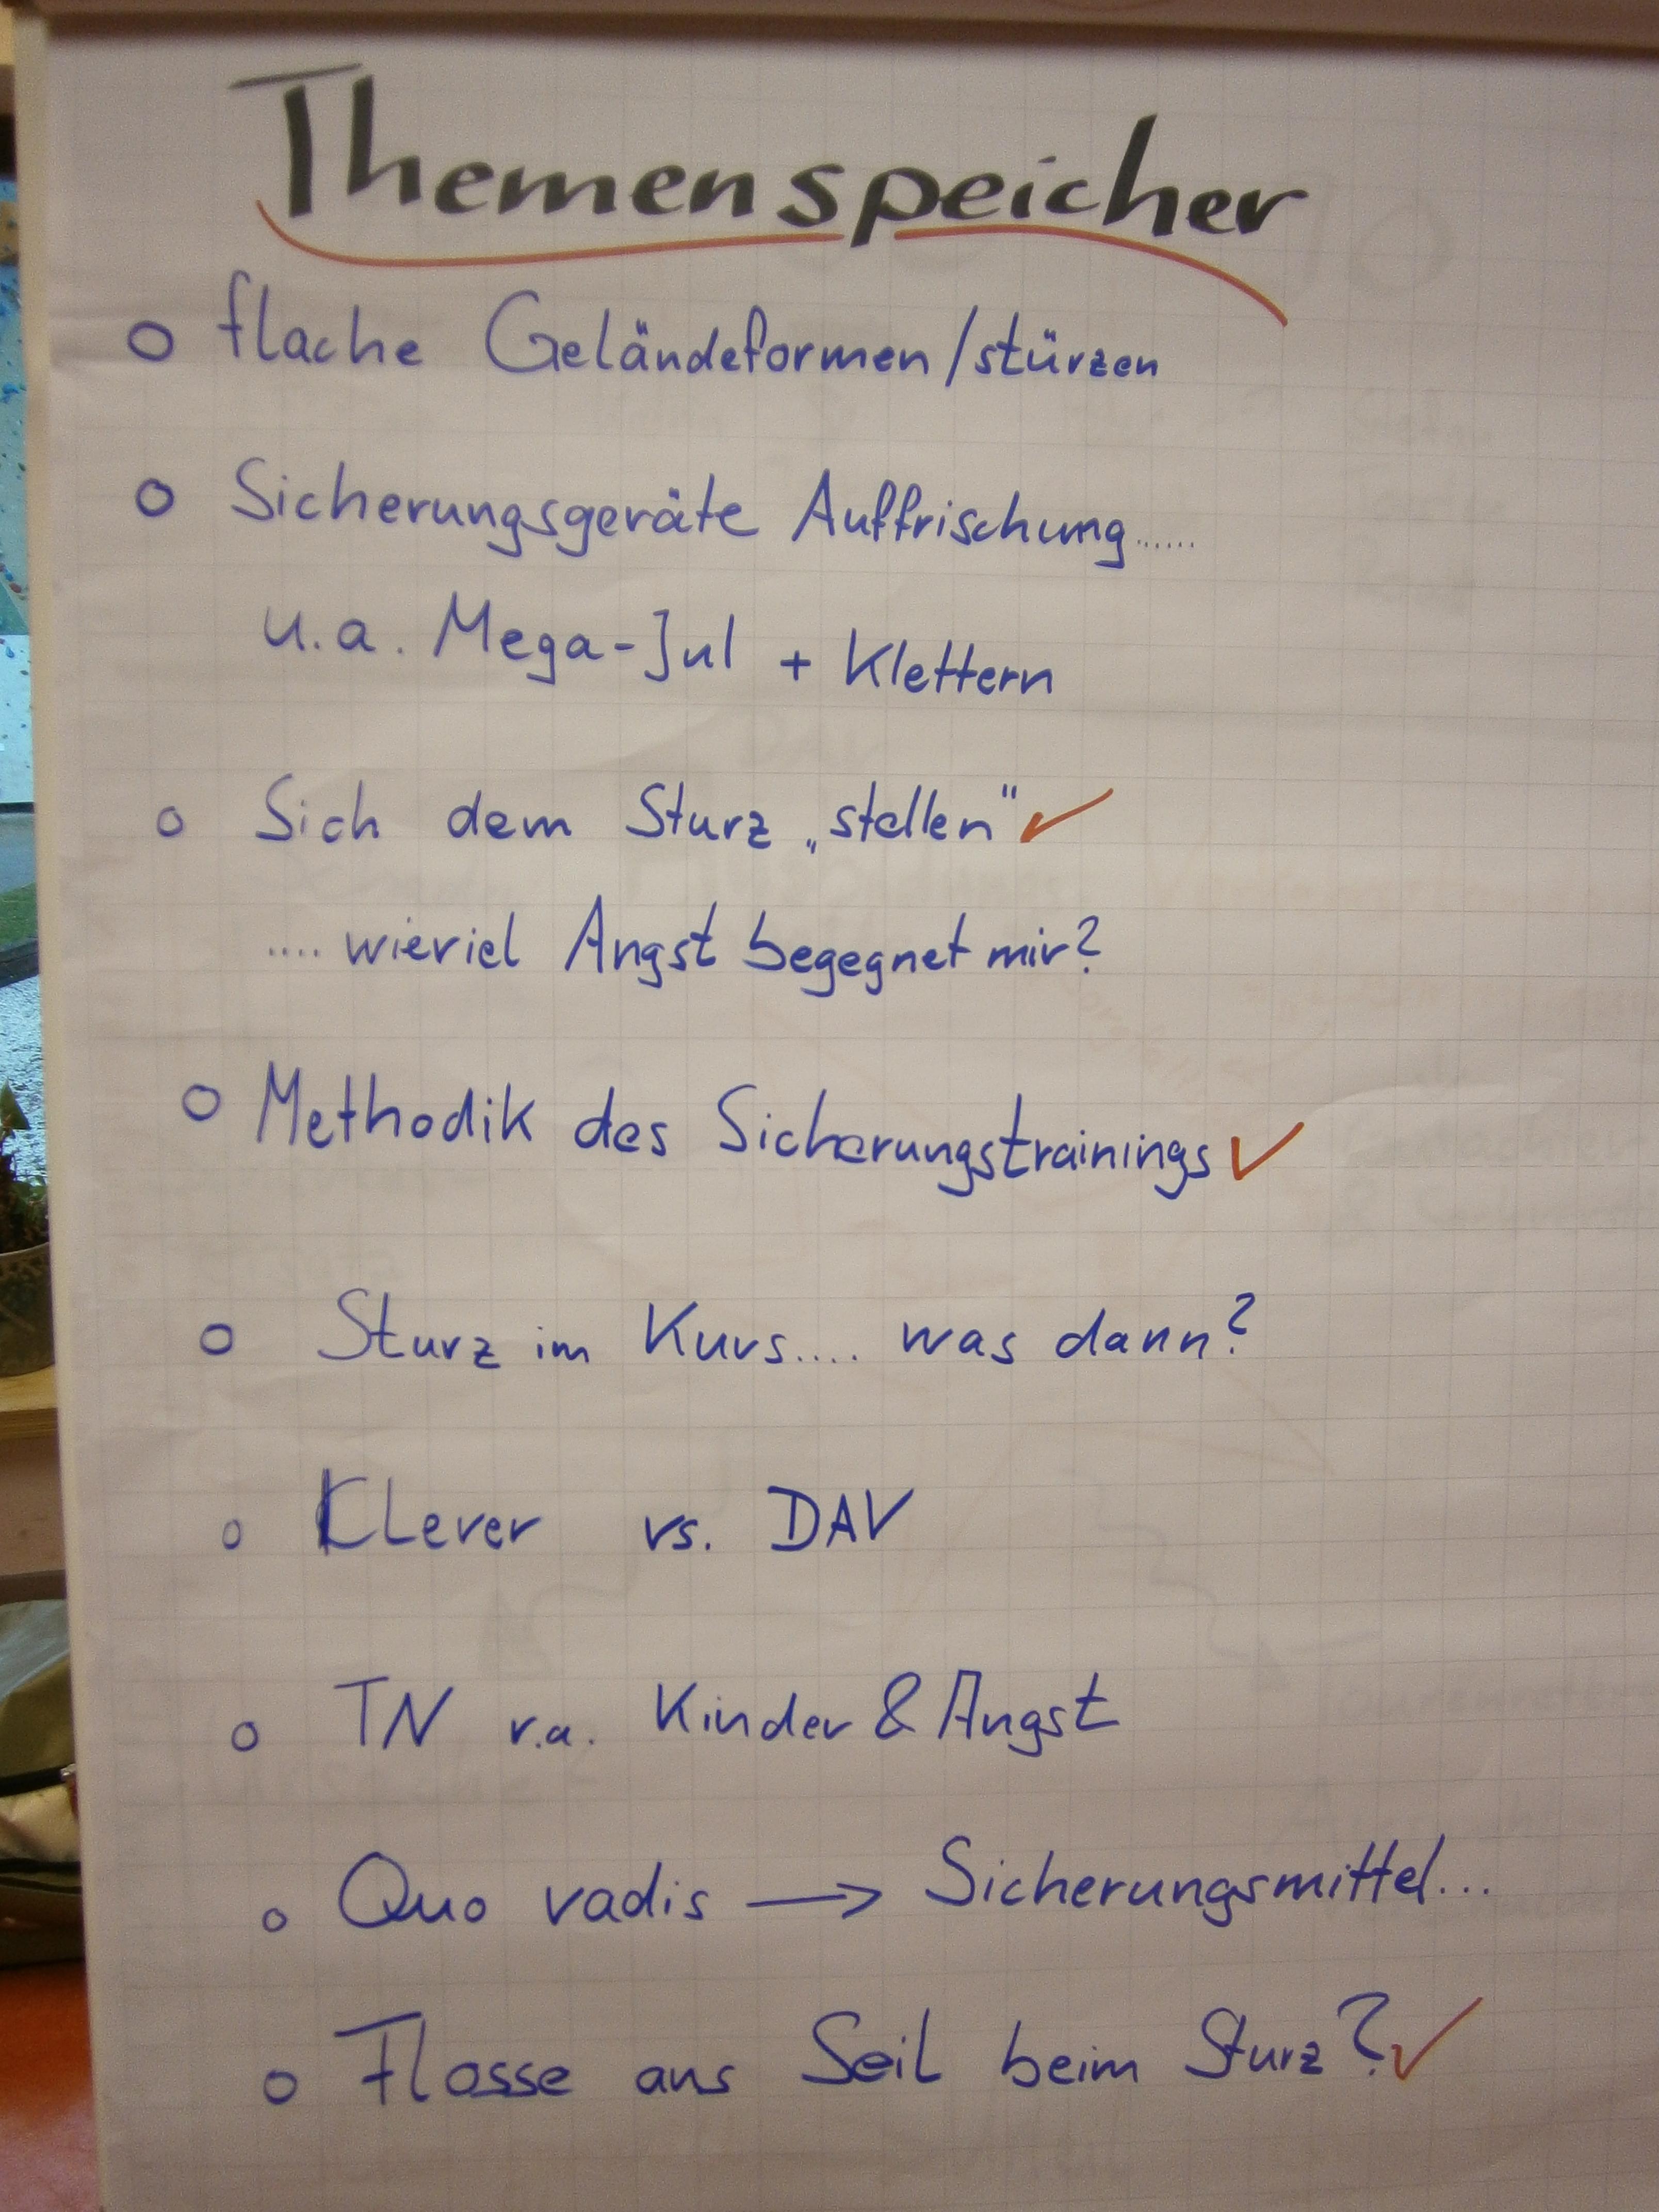 Themenspeicher
o flache Geländeformen/stürzen
o Sicherungsgeräte Auffrischung......
u.a. Mega-Jul + Klettern
o Sich dem Sturz „stellen" ✓
.... wieviel Angst begegnet mir?
o Methodik des Sicherungstrainings ✓
o Sturz im Kurs.... was dann?
o KLever vs. DAV
o TN v.a. Kinder & Angst
o Quo vadis → Sicherungsmittel...
o Flosse ans Seil beim Sturz? ✓